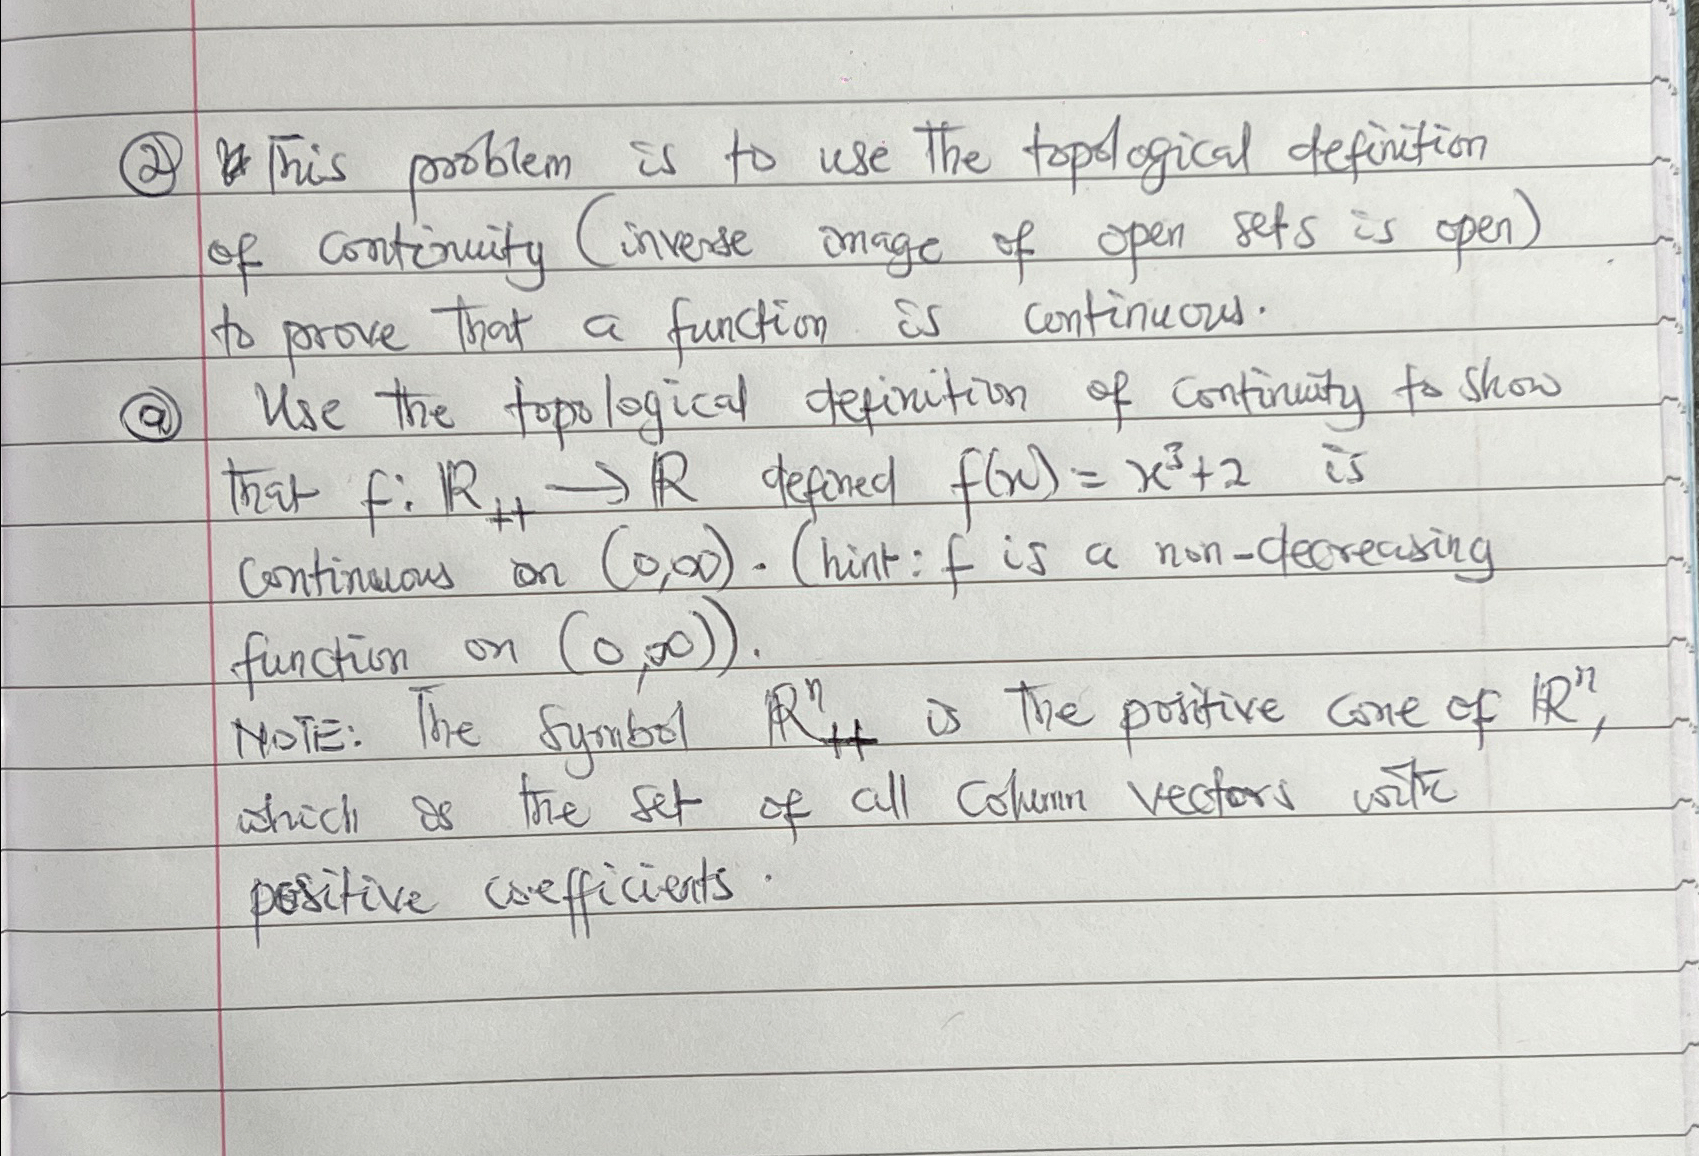 ② This problem is to use The topological definition
of continuity (inverse image of open sets is open)
to prove That a function is continuous.
ⓐ Use the topological definition of continuity to show
That f: ℝ₊₊ → ℝ defined f(x) = x³+2 is
continuous on (0,∞). (hint: f is a non-decreasing
function on (0,∞)).
NOTE: The symbol ℝⁿ₊₊ is The positive cone of ℝⁿ,
which is the set of all column vectors with
positive coefficients.